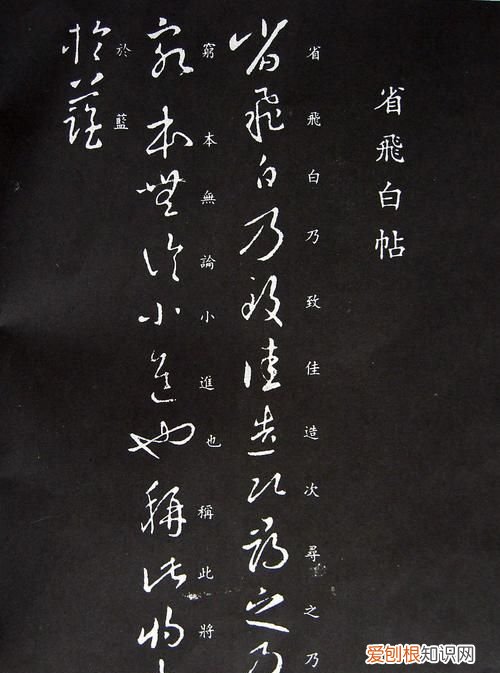 省飛白帖
省飛白乃致佳造次尋之乃
省飛白乃致佳造次尋之乃
窮本無論小進也稱此將
窮本無論小進也稱此將
於藍
於藍
爱刨根知识网